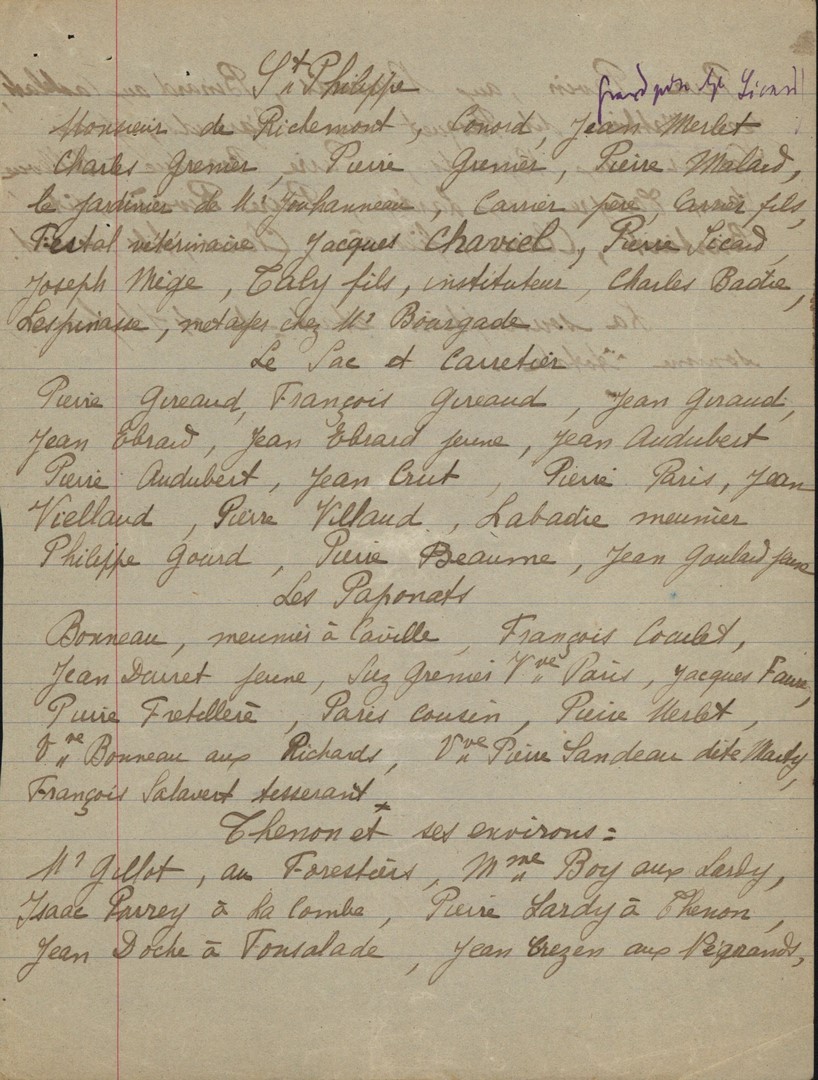 St Philippe
grand père Sicard
Monsieur de Richemont, Conord, Jean Merlet
Charles Grenier, Pierre Grenier, Pierre Malard,
le jardinier de Mr Jouhanneau, Carrier père, Carrier fils,
Festal vétérinaire, Jacques Chaviel, Pierre Sicard,
Joseph Mège, Taly fils, instituteur, Charles Badie,
Lespinasse, metayer chez Mr Bourgade
Le Sac et Carretier
Pierre Gireaud, François Gireaud, Jean Giraud,
Jean Ebrard, Jean Ebrard jeune, Jean Audubert
Pierre Audubert, Jean Crut, Pierre Paris, Jean
Viellaud, Pierre Villaud, Labadie meunier
Philippe Gourd, Pierre Beaume, Jean Goulard jeune
Les Paponats
Bonneau, meunier à Caville, François Coculet,
Jean Douret jeune, Suz Grenier Vve Paris, Jacques Faure,
Pierre Fretillère, Paris cousin, Pierre Merlet,
Vve Bonneau aux Richards, Vve Pierre Sandeau dite Marty,
François Salavert tisserant
Thenon et ses environs =
Mr Gillot, au Forestiers, Mme Boy aux Lardy,
Isaac Parrey à la Combe, Pierre Lardy à Thenon,
Jean Doche à Fonsalade, Jean Crezen aux Végrands,